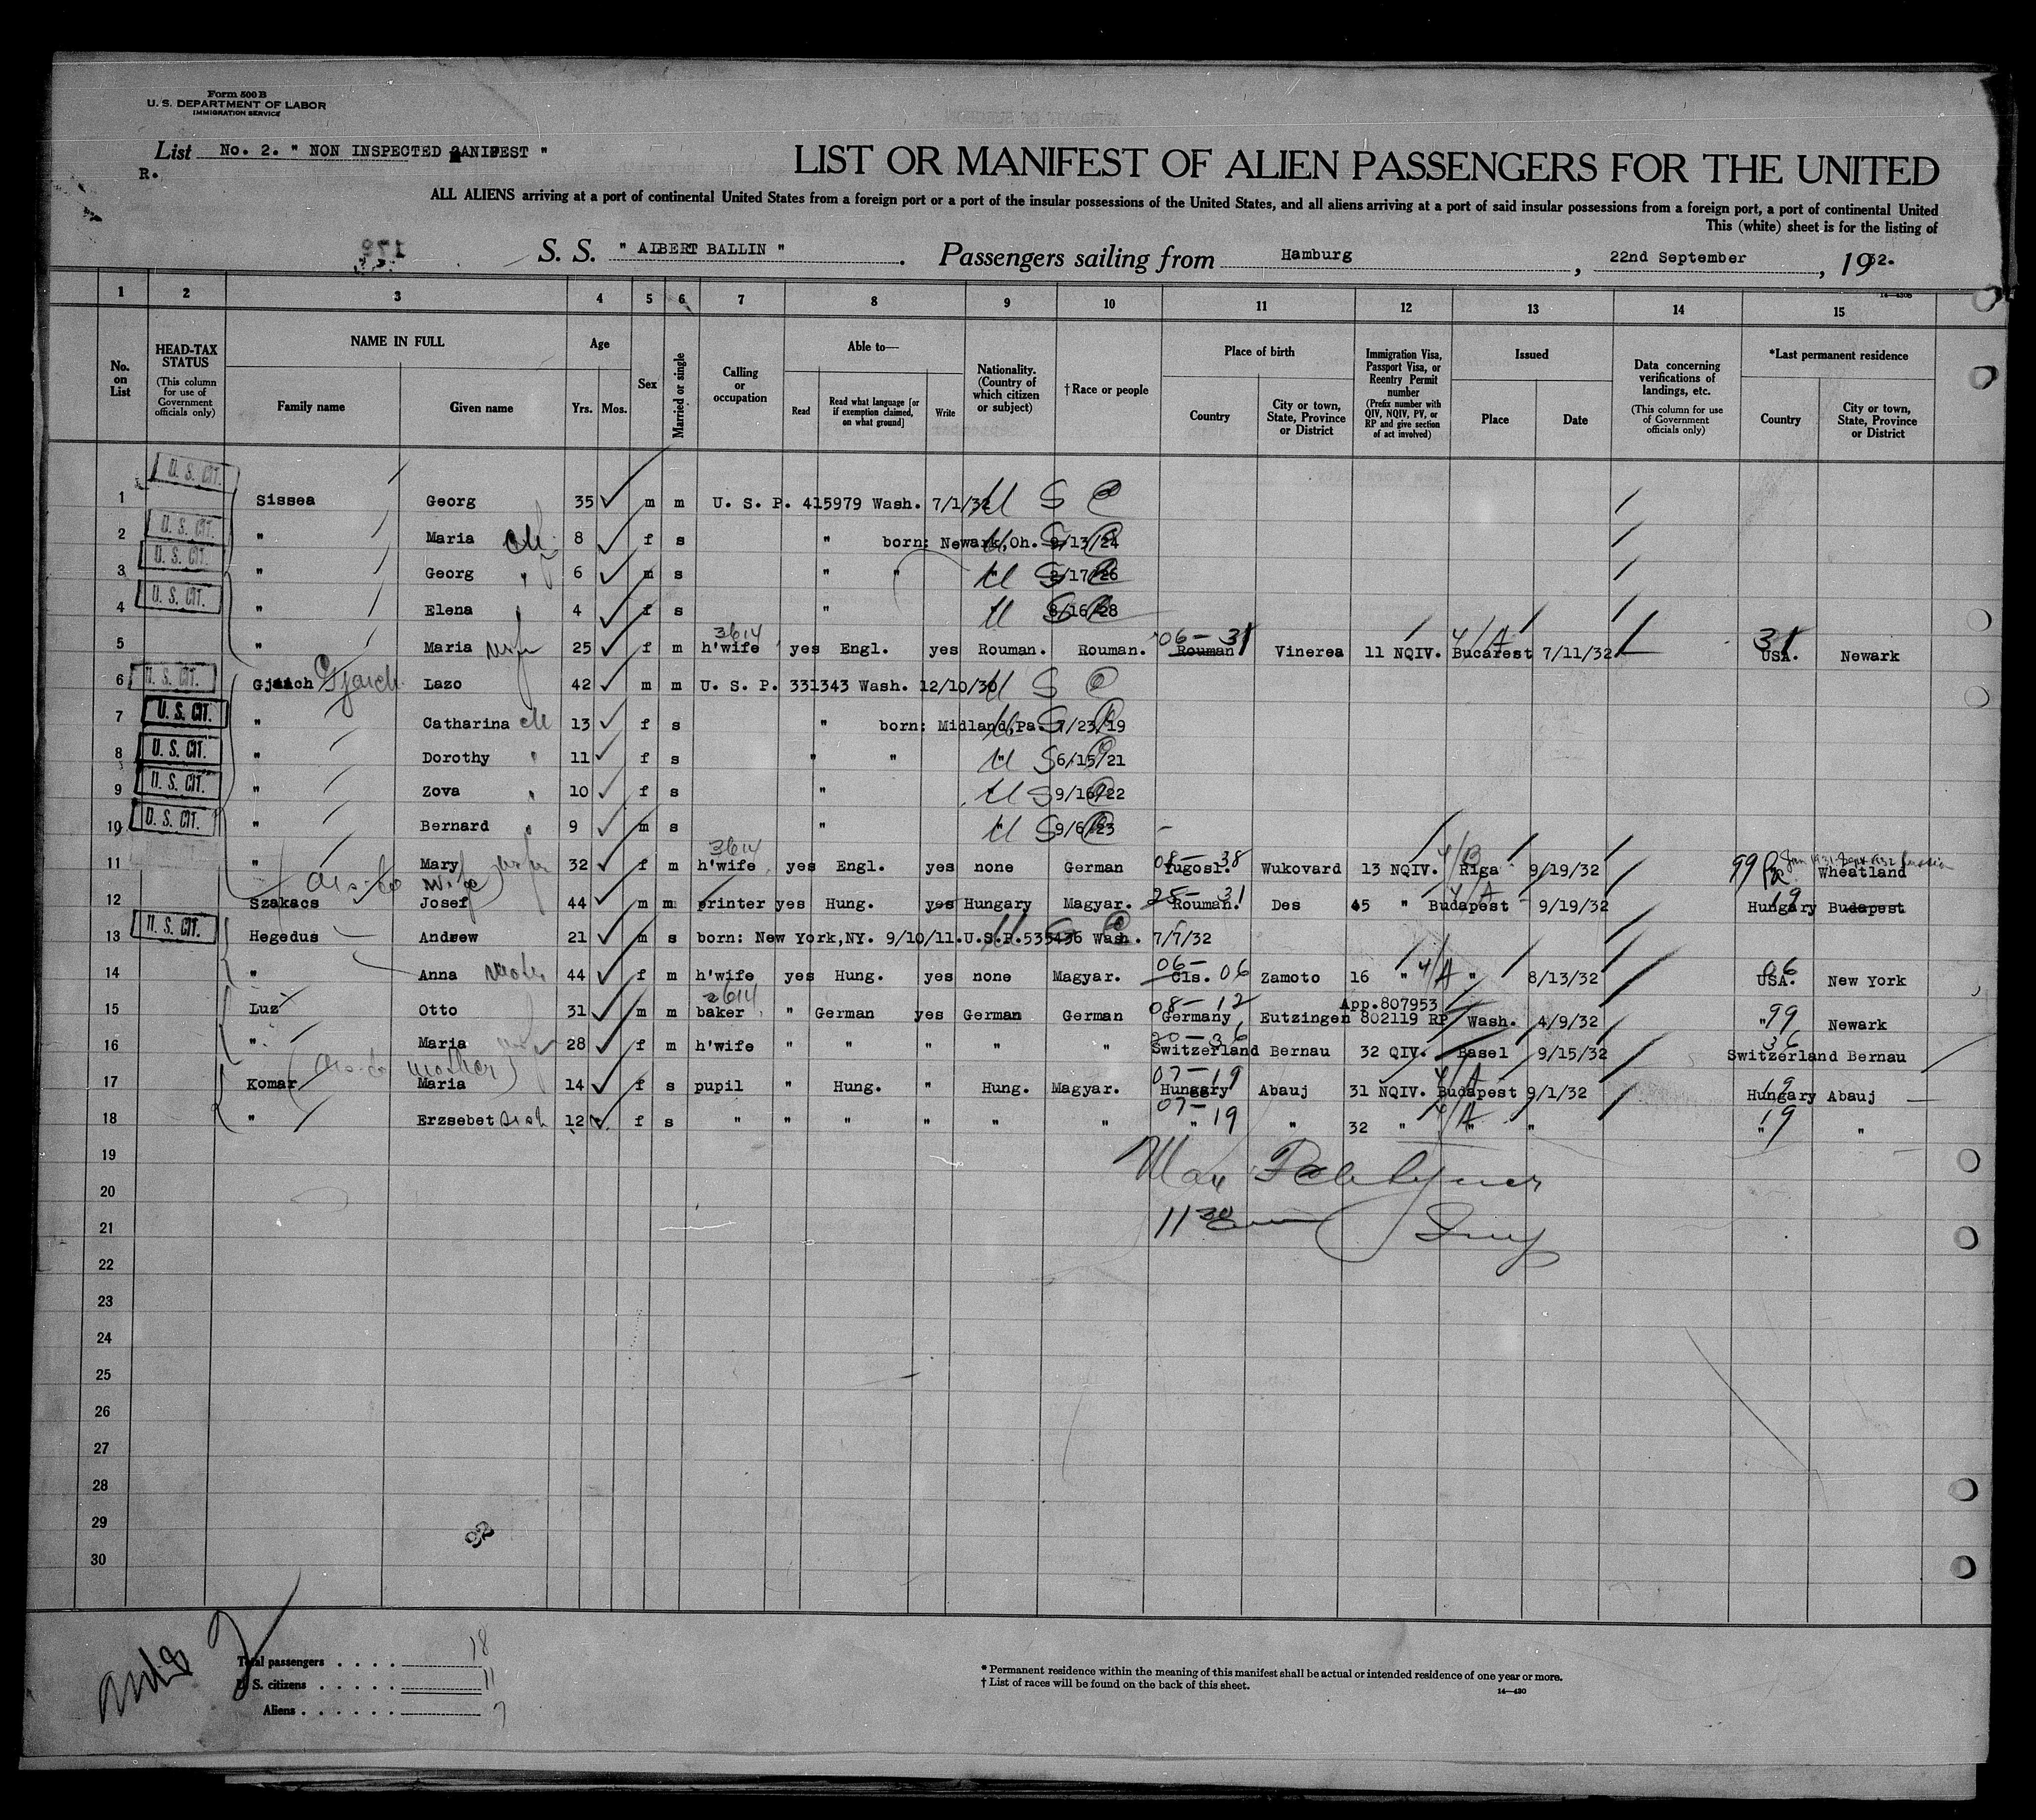 Form 500 B
U. S. DEPARTMENT OF LABOR
IMMIGRATION SERVICE
List No. 2. " NON INSPECTED MANIFEST "
R.
LIST OR MANIFEST OF ALIEN PASSENGERS FOR THE UNITED
ALL ALIENS arriving at a port of continental United States from a foreign port or a port of the insular possessions of the United States, and all aliens arriving at a port of said insular possessions from a foreign port, a port of continental United
This (white) sheet is for the listing of
S. S. " ALBERT BALLIN ". Passengers sailing from Hamburg, 22nd September, 1932.
14—430B
1 2 3 4 5 6 7 8 9 10 11 12 13 14 15
No. on List
HEAD-TAX STATUS (This column for use of Government officials only)
NAME IN FULL Family name Given name
Age Yrs. Mos.
Sex
Married or single
Calling or occupation
Able to— Read Read what language [or if exemption claimed, on what ground] Write
Nationality. (Country of which citizen or subject)
†Race or people
Place of birth Country City or town, State, Province or District
Immigration Visa, Passport Visa, or Reentry Permit number (Prefix number with QIV, NQIV, PV, or RP and give section of act involved)
Issued Place Date
Data concerning verifications of landings, etc. (This column for use of Government officials only)
*Last permanent residence Country City or town, State, Province or District
1 U. S. CIT. Sissea Georg 35 m m U. S. P. 415979 Wash. 7/1/32 U S C
2 U. S. CIT. " Maria ch 8 f s " born: Newark,Oh. 9/13/24 U S C
3 U. S. CIT. " Georg " 6 m s " " " 2/17/26 U S C
4 U. S. CIT. " Elena 4 f s " 8/16/28 U S C
3614 06— 31 4/A 31
5 " Maria wife 25 f m h'wife yes Engl. yes Rouman. Rouman. Rouman Vinerea 11 NQIV. Bucarest 7/11/32 USA. Newark
6 U. S. CIT. Gjaich Gjaich Lazo 42 m m U. S. P. 331343 Wash. 12/10/30 U S C
7 U. S. CIT. " Catharina ch 13 f s " born: Midland,Pa. 7/23/19 U S C
8 U. S. CIT. " Dorothy " 11 f s " " " 6/15/21 U S C
9 U. S. CIT. " Zova " 10 f s " 9/16/22 U S C
10 U. S. CIT. " Bernard " 9 m s " " 9/6/23 U S C
3614 08— 38 4/B 99 Jan 1931-Sept 1932 Russia
11 " Mary wife 32 f m h'wife yes Engl. yes none German Yugosl. Wukovard 13 NQIV. Riga 9/19/32 Wheatland
wife 25— 31 4/A 19
12 Szakacs Josef 44 m m printer yes Hung. yes Hungary Magyar. Rouman. Des 45 " Budapest 9/19/32 Hungary Budapest
13 U. S. CIT. Hegedus Andrew 21 m s born: New York,NY. 9/10/11.U.S.P.535436 Wash. 7/7/32 U S C
06— 06 4/A 06
14 " Anna mother 44 f m h'wife yes Hung. yes none Magyar. Cls. Zamoto 16 " " 8/13/32 USA. New York
2614 08— 12 App.807953 99
15 Luz Otto 31 m m baker " German yes German German Germany, Eutzingen 802119 RP Wash. 4/9/32 " Newark
20— 36 36
16 " Maria 28 f m h'wife " " " " " Switzerland Bernau 32 QIV. Basel 9/15/32 Switzerland Bernau
mother 07— 19 4/A 19
17 Komar Maria 14 f s pupil " Hung. " Hung. Magyar. Hungary Abauj 31 NQIV. Budapest 9/1/32 Hungary Abauj
07— 19 4/A 19
18 " Erzsebet sist 12 f s " " " " " " " " 32 " " " " "
19
20
21 11 30
22
23
24
25
26
27
28
29
30
Total passengers . . . . 18
U. S. citizens . . . . . 11
Aliens . . . . . . 7
* Permanent residence within the meaning of this manifest shall be actual or intended residence of one year or more.
† List of races will be found on the back of this sheet.
14—430